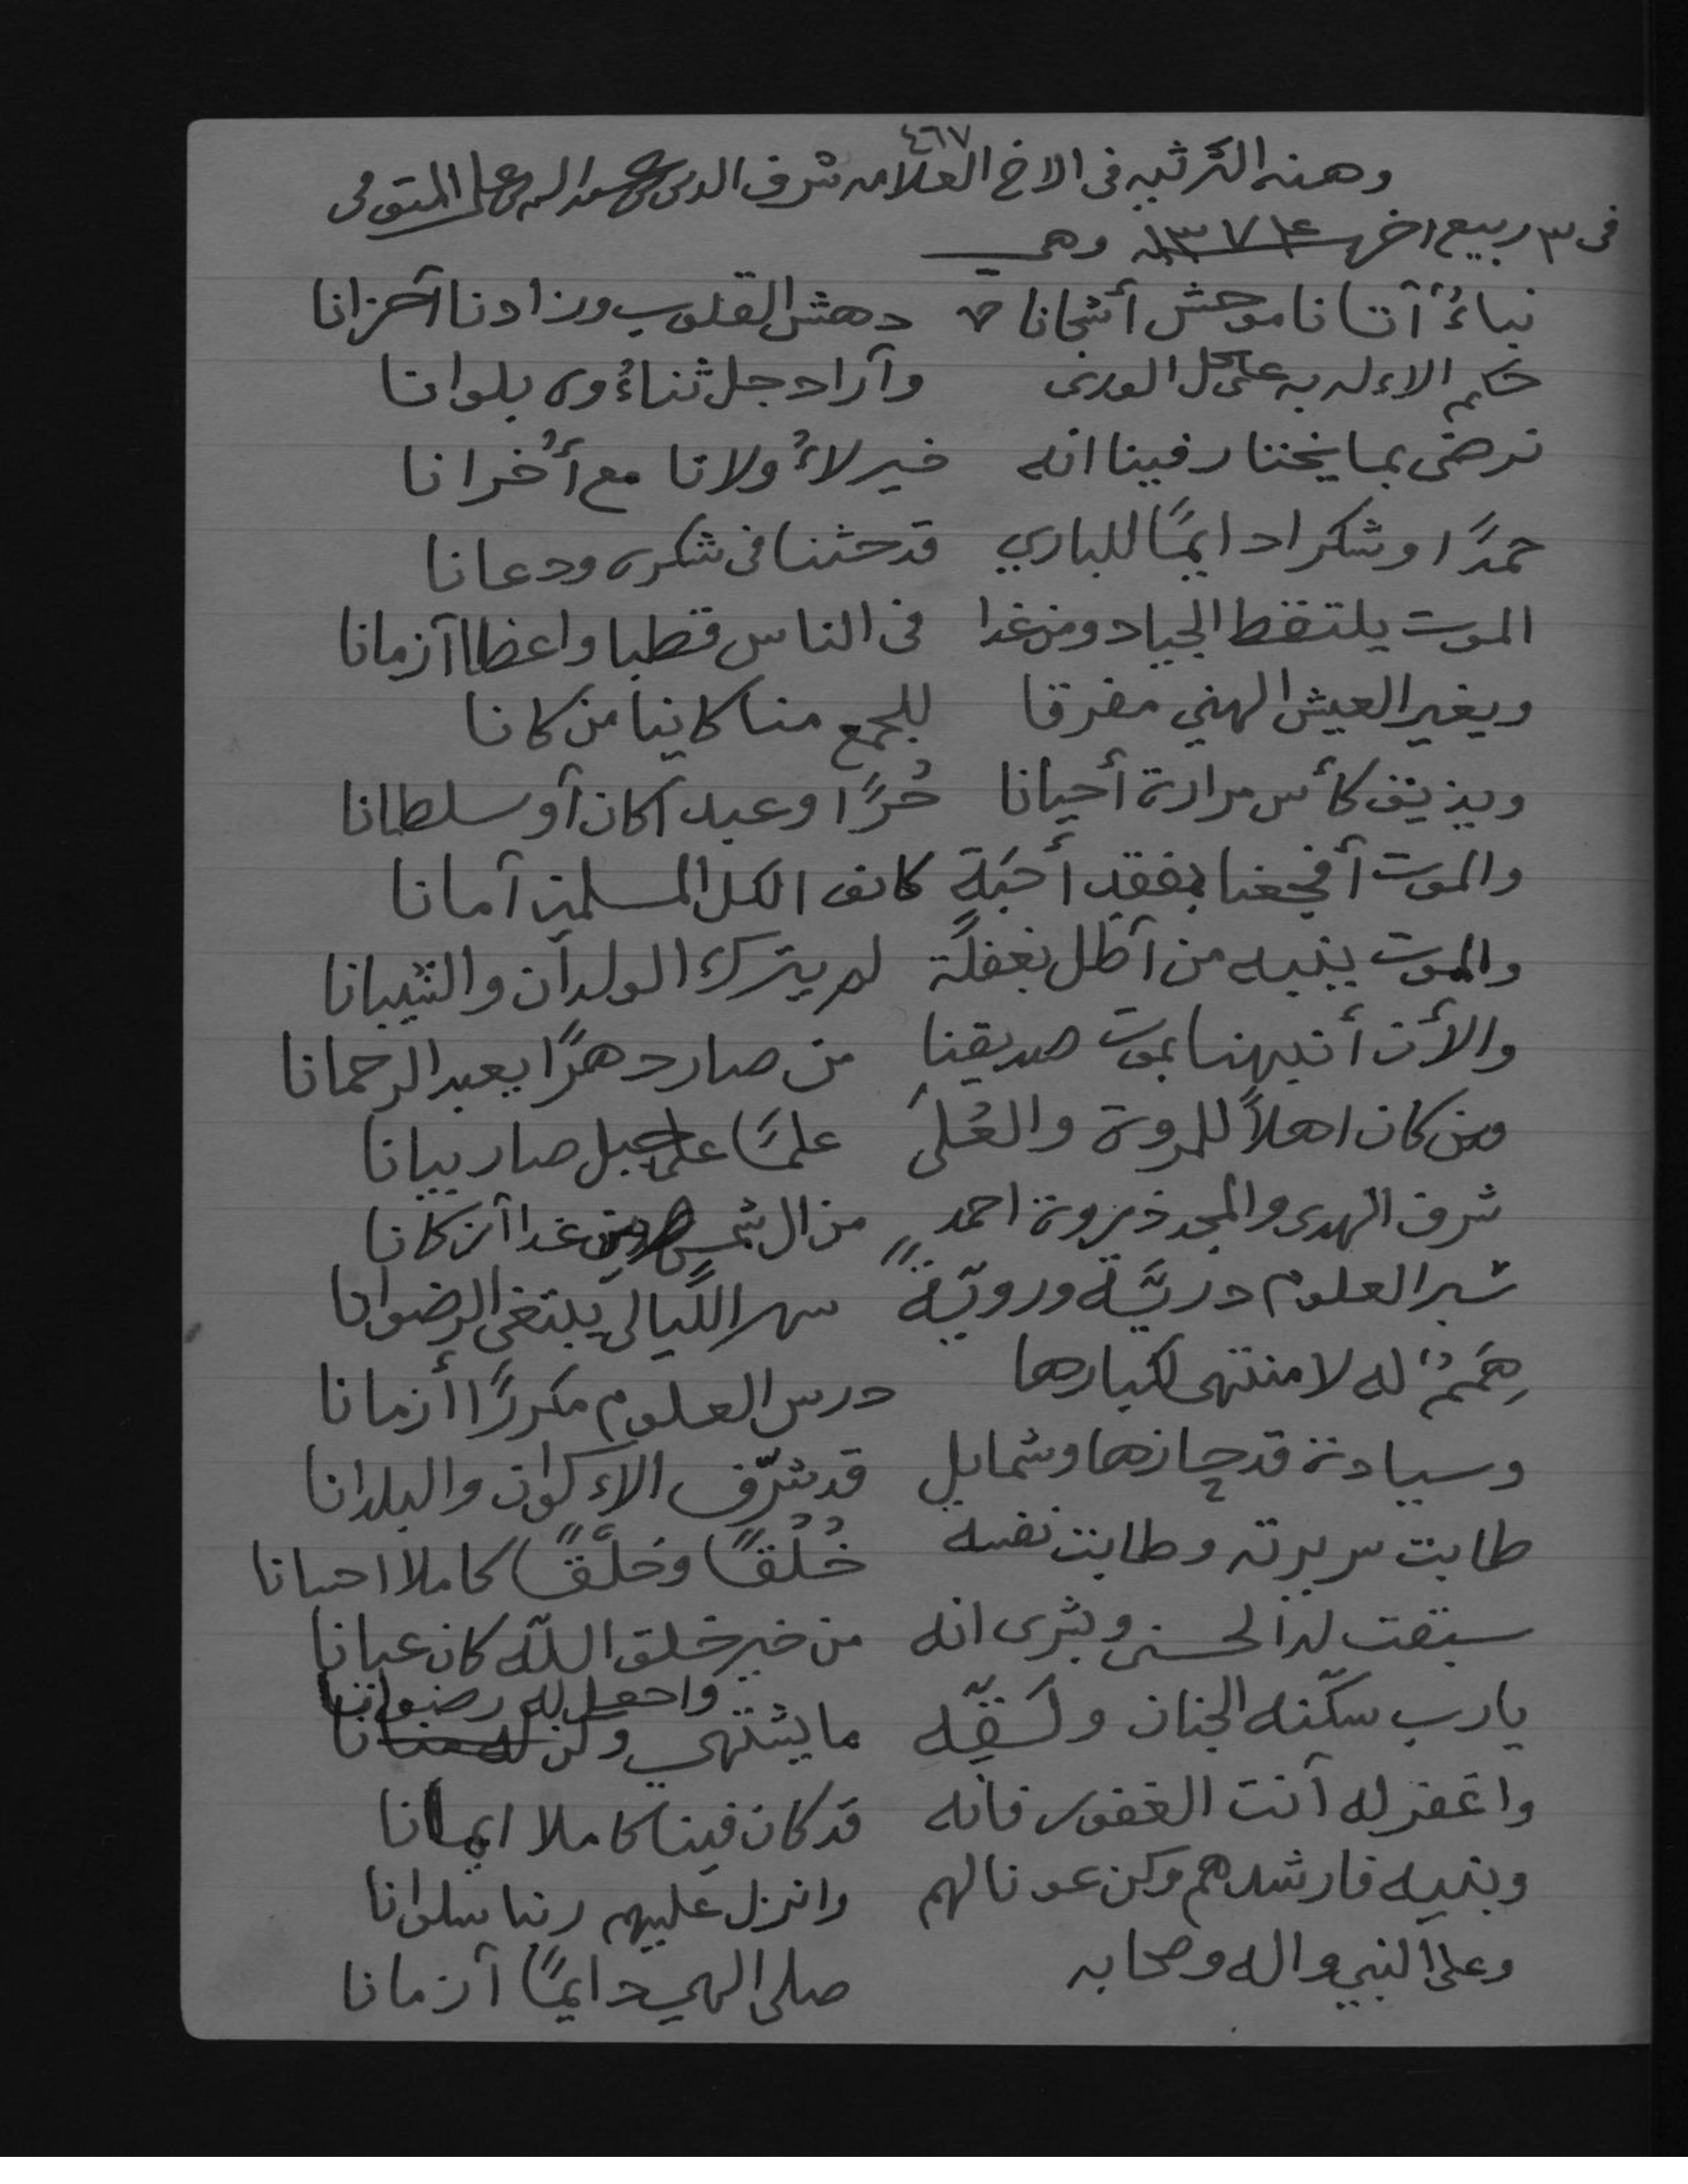 ٤٦٧
وهذه الترثيه في الاخ العلامه شرف الدين عبد الله علي المتوفى
في ٣ ربيع اخر ١٣٧٤ وهي
نباءٌ آتانا موحش أشجانا دهش القلوب وزادنا آحزانا
حكم الاءله به على كل الورى وآراد جل ثناءُه بلوانا
نرضى بما يختار فينا انه خير لاءُولانا مع أُخرانا
حمدًا وشكرا دايمًا للباري قد حثنا في شكره ودعانا
الموت يلتقط الجياد ومن غدا في الناس قطبا واعظا آزمانا
ويغير العيش الهني مفرقا للجمع منا كاينا من كانا
ويذيق كأس مرارة أحيانا حُرًّا وعبدا كان آو سلطانا
والموت آفجعنا بفقد أحبَةٍ كانوا لكل المسلمين آمانا
والموت ينبيه من آظل بغفلة لم يترك الولدان والشيبانا
والأن أنبهنا بموت صديقنا من صار دهرًا يعبد الرحمانا
من كان اهلاً للمروة والعُلىَ علمًا على جبل صار بيانا
شرف الهدى والمجد ذروة احمد من ال شمس غدا آركانا
سبر العلوم دريَّة ورويّةً سهر اللَّيالي يبتغي الرضوانا
هِمَمٌ له لا منتهى لكبارها درس العلوم مكررًا أزمانا
وسيادة قد حازها وشمايل قد شرّف الاءكوان والبلدانا
طابت سريرته وطابت نفسه خُلُقًا وخَلْقًا كاملا احسانا
سبقت له الحسنى وبشرى انه من خير خلق اللّه كان عيانا
واجعل له رضوانا
يارب سكّنه الجنان ولَقّه ما يشتهي وكن له
واغفر له آنت الغفور فانه قد كان فينا كاملا ايمانا
وبنيه فارشدهم وكن عونا لهم وانزل عليهم ربنا سلوانا
وعلى النبي واله وصحابه صلى الهي دايمًا آزمانا